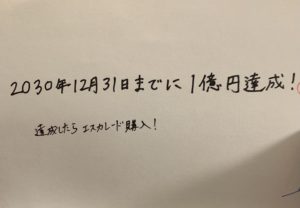 2030年12月31日までに1億円達成!
達成したら エスカレード購入!